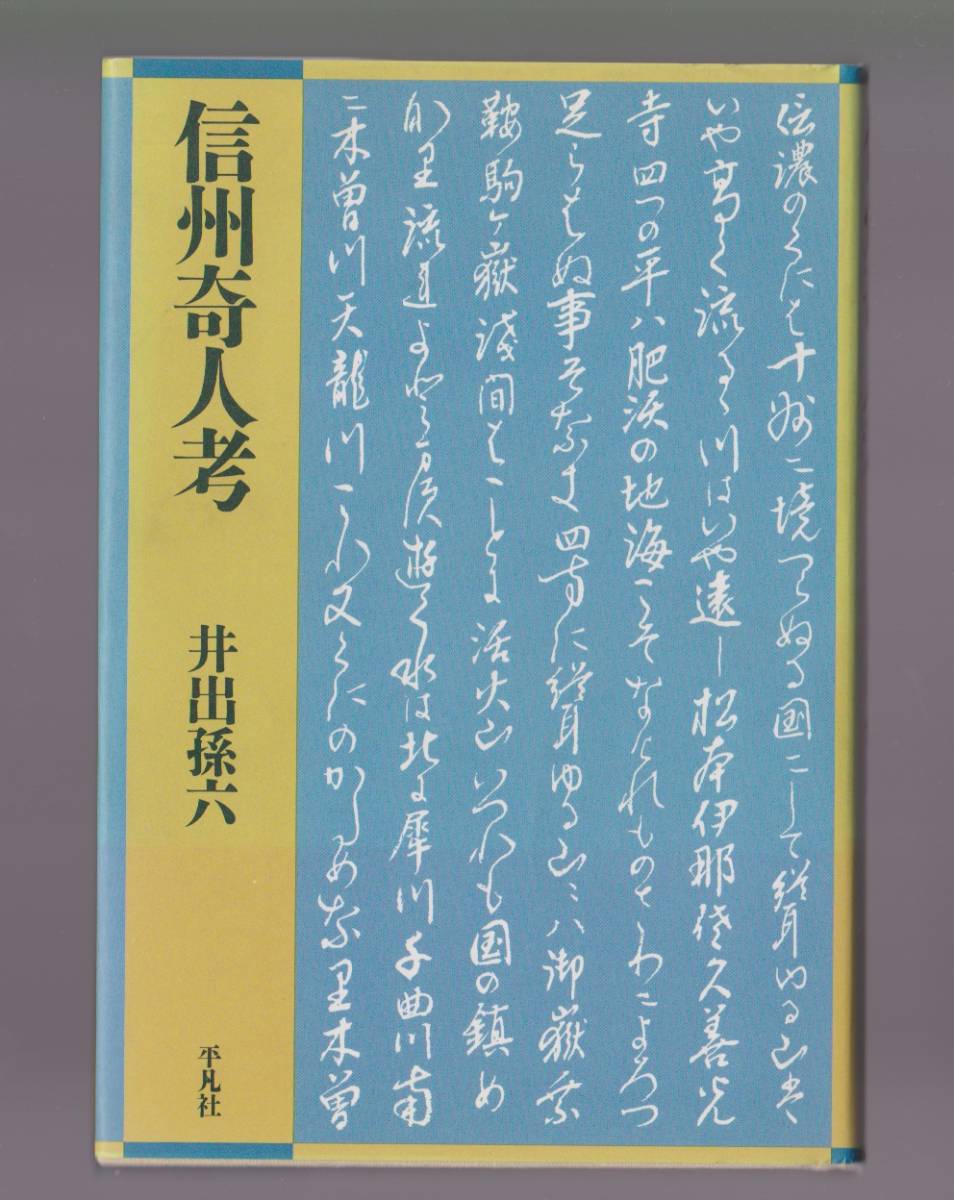 信州奇人考
井出孫六
平凡社
信濃のくには十州に境つらぬる国にして聳ゆる山は
いや高く流るゝ川はいや遠し松本伊那佐久善光
寺四つの平ハ肥沃の地海こそなけれものさわによろつ
足らはぬ事そなき四方に聳ゆる山々ハ御嶽乗
鞍駒ヶ嶽浅間はことに活火山いつれも国の鎮め
なり流れよとますゆく水は北に犀川千曲川南
に木曽川天龍川これ又くにのかためなり木曽